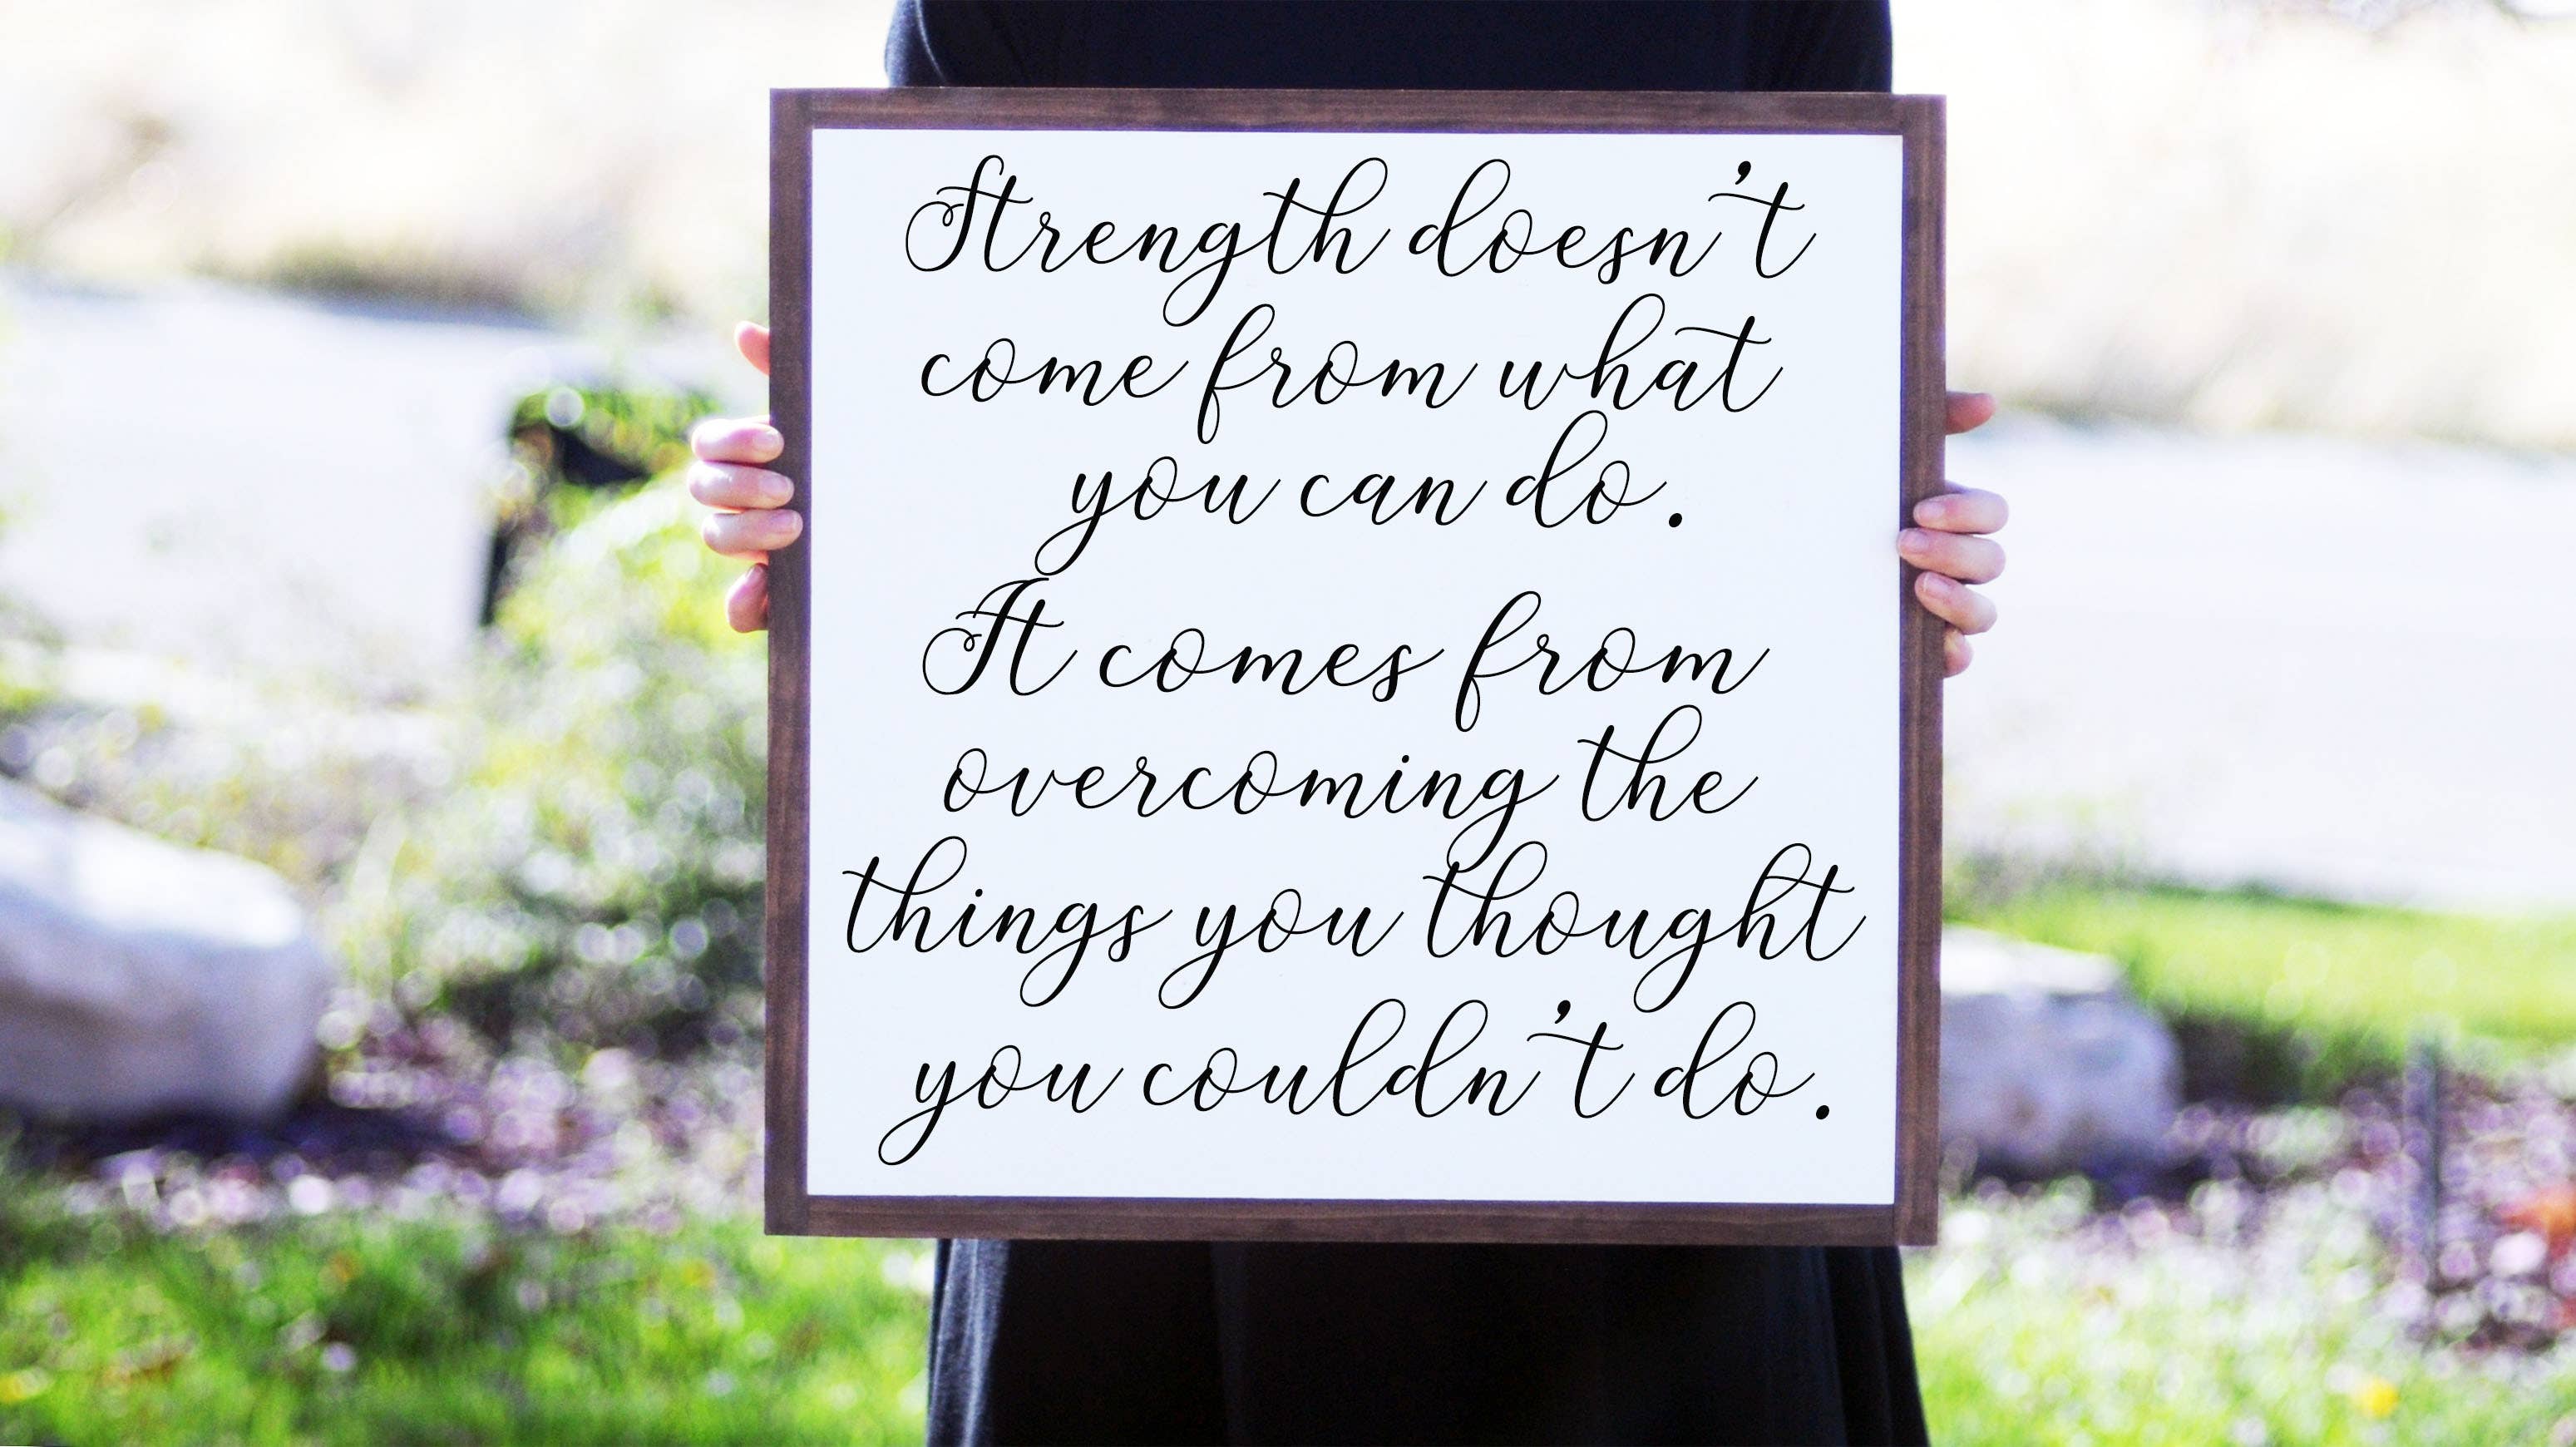 Strength doesn't
come from what
you can do.
It comes from
overcoming the
things you thought
you couldn't do.